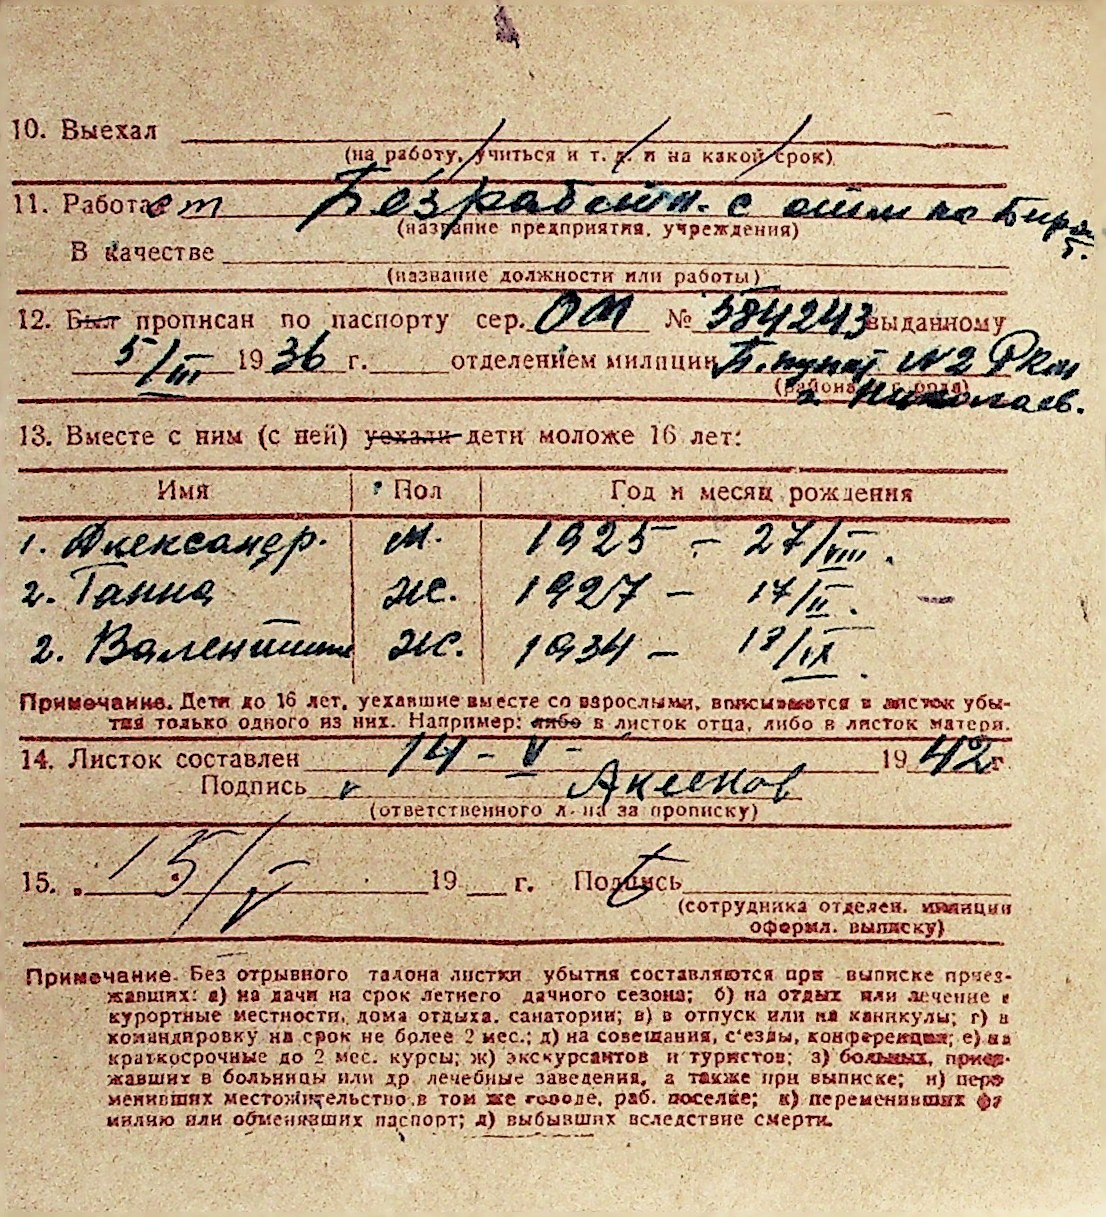 10. Выехал
(на работу, учиться и т. д. и на какой срок)
11. Работает Безработн. с
(название предприятия, учреждения)
В качестве
(название должности или работы)
12. Был прописан по паспорту сер. ОМ № 584243 выданному
5/III 1936 г. отделением милиции П. пункт №2 РКМ
(района и города)
г. Николаев.
13. Вместе с ним (с ней) уехали дети моложе 16 лет:
Имя Пол Год и месяц рождения
1. Александр. м. 1925 - 27/VIII.
2. Ганна ж. 1927 - 17/II.
2. Валентина ж. 1934 - 18/IX
Примечание. Дети до 16 лет, уехавшие вместе со взрослыми, вписываются в листок убы-
тия только одного из них. Например: либо в листок отца, либо в листок матери.
14. Листок составлен 14-V- 1942 г
Подпись Аксенов
(ответственного л-на за прописку)
15. „ 15/V 19 г. Подпись
(сотрудника отделен. милиции
оформл. выписку)
Примечание. Без отрывного талона листки убытия составляются при выписке приез-
жавших: а) на дачи на срок летнего дачного сезона; б) на отдых или лечение в
курортные местности, дома отдыха, санатории; в) в отпуск или на каникулы; г) в
командировку на срок не более 2 мес.; д) на совещания, с'езды, конференции; е) на
краткосрочные до 2 мес. курсы; ж) экскурсантов и туристов; з) больных, приез-
жавших в больницы или др лечебные заведения, а также при выписке; и) пере
менивших местожительство в том же городе, раб. поселке; к) переменивших фа
милию или обменявших паспорт; л) выбывших вследствие смерти.